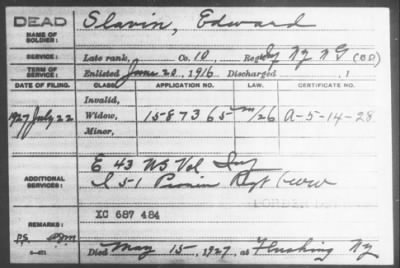 DEAD
Slavin, Edward
NAME OF SOLDIER:
SERVICE: Late rank, Co. 10, Reg't Inf NY NG (CAD)
TERM OF SERVICE: Enlisted June 20, 1916 Discharged , 1
DATE OF FILING. CLASS. APPLICATION NO. LAW. CERTIFICATE NO.
Invalid,
1927 July 22 Widow, 1587365 m/26 A-5-14-28
Minor,
ADDITIONAL SERVICES: E 43 US Vol Inf
I 51 Pionin Regt WW
XC 687 484
REMARKS:
Died May 15, 1927, at Flushing NY